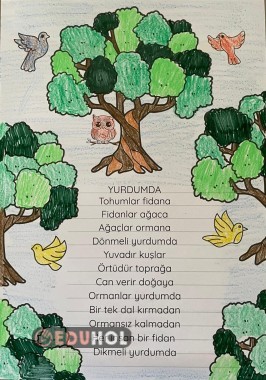 YURDUMDA
Tohumlar fidana
Fidanlar ağaca
Ağaçlar ormana
Dönmeli yurdumda
Yuvadır kuşlar
Örtüdür toprağa
Can verir doğaya
Ormanlar yurdumda
Bir tek dal kırmadan
Ormansız kalmadan
bir fidan
Dikmeli yurdumda
EDUHOL